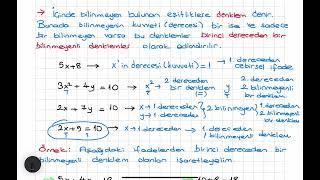 → İçinde bilinmeyen bulunan eşitliklere denklem denir.
Burada bilinmeyenin kuvveti (derecesi) bir ise ve sadece
bir bilinmeyen varsa bu denklemler birinci dereceden bir
bilinmeyenli denklemler olarak adlandırılır.
5x+8 → x'in derecesi (kuvveti) = 1 → 1. dereceden cebirsel ifade
3x² + 4y = 10 → x² → 2. dereceden 2 bilinmeyenli bir denklem
2x + 7y = 10 → x → 1. dereceden y → 1. dereceden 2 bilinmeyenli bir denklem
2x + 9 = 10 → x → 1. dereceden 1 bilinmeyenli bir denklem
Örnek: Aşağıdaki ifadelerden birinci dereceden bir
bilinmeyenli denklem olanları işaretleyelim.